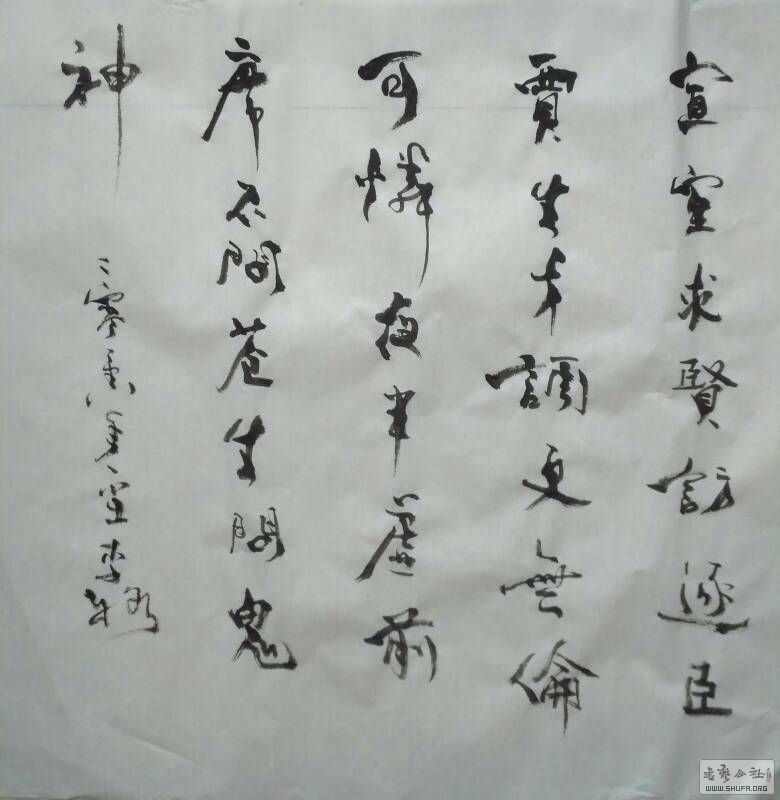 宣室求賢訪逐臣
賈生才調更無倫
可憐夜半虛前
席不問蒼生問鬼
神
二零壹八年
書藝公社
WWW.SHUFA.ORG